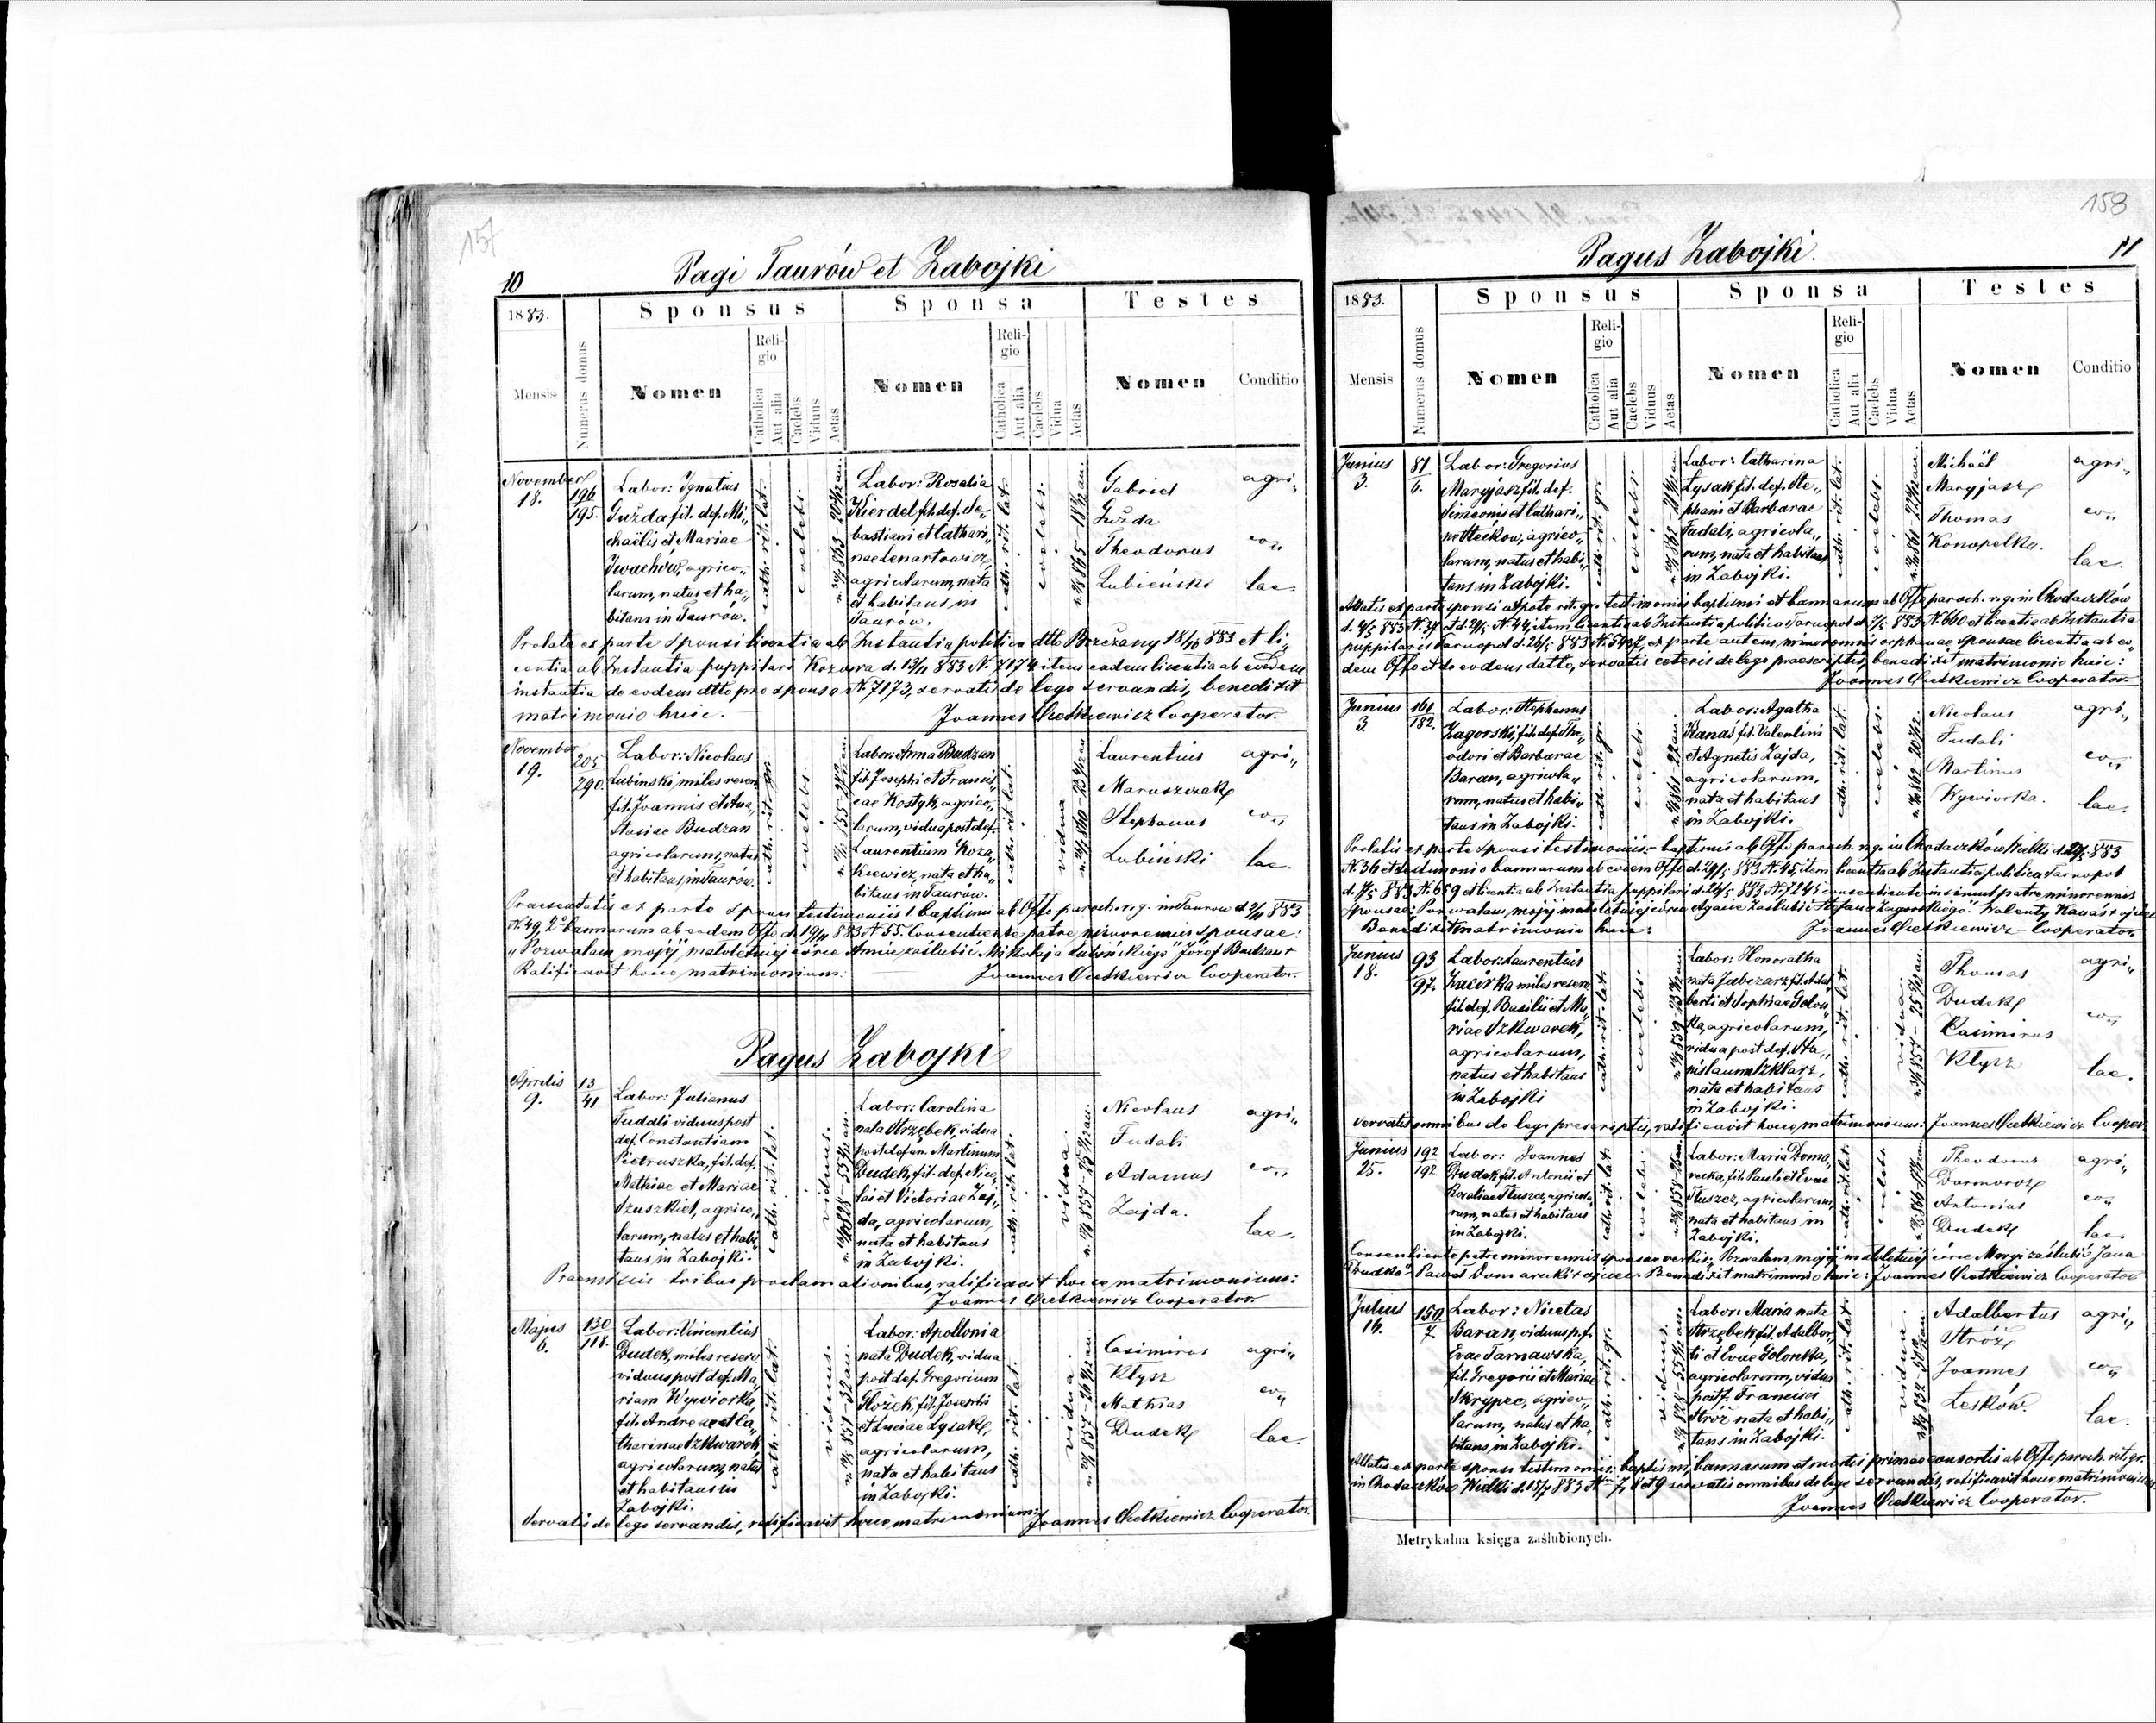 157
10
Pagi Taurów et Zabojki
1883.
Sponsus
Sponsa
Testes
Mensis
Numerus domus
Nomen
Religio
Catholica
Aut alia
Caelebs
Viduus
Aetas
Nomen
Religio
Catholica
Aut alia
Caelebs
Vidua
Aetas
Nomen
Conditio
November
18.
196
195.
Labor: Ignatius
Gużda fil. def. Mi„
chaëlis et Mariae
Iwachów, agrico„
larum, natus et ha„
bitans in Taurów.
cath. rit. lat.
coelebs.
Labor: Rosalia
Kierdel fil. def. Se„
bastiani et Cathari„
nae Lenartowicz,
agricolarum, nata
et habitans in
Taurów.
cath. rit. lat.
coelebs.
Gabriel
Gużda
Theodorus
Lubiński
agri„
co„
lae
Prolata ex parte sponsi licentia ab Instantia politica dtto Brzeżany 18/10 883 et li„
centia ab Instantia puppilari Kozowa d. 13/11 883 N. 7174 item eadem licentia ab eadem
instantia de eodem dtto pro sponsa N. 7173, servatis de lege servandis, benedixit
matrimonio huic.
Joannes Cietkiewicz Cooperator.
November
19.
205
290.
Labor: Nicolaus
Lubinski, miles reserv.
fil. Joannis et Ana„
stasiae Budzan
agricolarum, natus
et habitans in Taurów.
cath. rit. gr.
coelebs.
Labor: Anna Budzan
fil. Josephi et Francis„
cae Kostyk, agrico„
larum, vidua post def.
Laurentium Koza„
kiewicz, nata et ha„
bitans in Taurów.
cath. rit. lat.
vidua
Laurentius
Maruszczak
Stephanus
Lubiński
agri„
co„
lae.
Praesentatis ex parte sponsi testimoniis 1 baptismi ab Offo paroch. r. g. in Taurow d. 2/11 883
N. 49, 2° bannorum ab eodem Offo d. 19/11 883 N. 55. Consentiente patre minorennis sponsae:
„Pozwalam mojéj małoletniéj córce Annie zaślubić Mikołaja Lubińskiego" Józef Budzan +
Ratificavit hocce matrimonium:
Joannes Cietkiewicz Cooperator.
Pagus Zabojki
Aprilis
9.
13
41
Labor: Julianus
Tudali viduus post
def. Constantiam
Pietruszka, fil. def.
Mathiae et Mariae
Szuszkiel, agrico„
larum, natus et habi„
tans in Zabojki.
cath. rit. lat.
viduus.
Labor: Carolina
nata Strzębek, vidua
post defun. Martinum
Dudek, fil. def. Nico„
lai et Victoriae Zaj„
da, agricolarum,
nata et habitans
in Zabojki.
cath. rit. lat.
vidua.
Nicolaus
Tudali
Adamus
Zajda.
agri„
co„
lae.
Praemissis tribus proclamationibus, ratificavit hocce matrimonium:
Joannes Cietkiewicz Cooperator.
Majus
6.
130
118.
Labor: Vincentius
Dudek, miles reserv.
viduus post def. Ma„
riam Wywiórka,
fil. Andreae et Ca„
tharinae Szkwarek,
agricolarum, natus
et habitans in
Zabojki.
cath. rit. lat.
viduus.
Labor: Apollonia
nata Dudek, vidua
post def. Gregorium
Głożek, fil. Josephi
et Luciae Łysak,
agricolarum,
nata et habitans
in Zabojki.
cath. rit. lat.
vidua
Casimirus
Kłysz
Mathias
Dudek
agri„
co„
lae.
Servatis de lege servandis, ratificavit hocce matrimonium:
Joannes Cietkiewicz Cooperator.
158
11
Pagus Zabojki.
1883.
Sponsus
Sponsa
Testes
Mensis
Numerus domus
Nomen
Religio
Catholica
Aut alia
Caelebs
Viduus
Aetas
Nomen
Religio
Catholica
Aut alia
Caelebs
Vidua
Aetas
Nomen
Conditio
Junius
3.
81
6.
Labor: Gregorius
Maryjasz fil. def.
Simeonis et Cathari„
nae Steckow, agrico„
larum, natus et habi„
tans in Zabojki.
cath. rit. gr.
coelebs.
Labor: Catharina
Łysak fil. def. Ste„
phani et Barbarae
Tudali, agricola„
rum, nata et habitans
in Zabojki.
cath. rit. lat.
coelebs.
Michaël
Maryjasz
Thomas
Konopelka.
agri„
co„
lae.
Allatis ex parte sponsi testimoniis baptismi et bannorum ab Offo paroch. r. g. in Chodaczków
puppilaris Tarnopol d. 26/5 883 N. 5427, ex parte autem minorennis orphanae sponsae licentia ab eo„
dem Offo et de eodem datto, servatis ceteris de lege praescriptis, benedixit matrimonio huic:
Joannes Cietkiewicz Cooperator.
Junius
3.
161
182.
Labor: Stephanus
Zagorski, fil. def. The„
odori et Barbarae
Baran, agricola„
rum, natus et habi„
tans in Zabojki.
cath. rit. gr.
coelebs.
Labor: Agatha
Kanaś fil. Valentini
et Agnetis Zajda,
agricolarum,
nata et habitans
in Zabojki.
cath. rit. lat.
coelebs.
Nicolaus
Tudali
Martinus
Wywiorka.
agri„
co„
lae.
Prolatis ex parte sponsi testimoniis: baptismi ab Offo paroch. r. g. in Chodaczków Wielki d. 29/5 883
N. 36 et testimonio bannorum ab eodem Offo d. 29/5 883 N. 45, item licentia ab Instantia politica Tarnopol
d. 7/5 883 N. 659 et licentia ab Instantia puppilari d. 26/5 883 N. 7245 consentiente insimul patre minorennis
sponsae: „Pozwalam mojéj małoletniéj córce Agacie zaślubić Stefana Zagorskiego." Walenty Kanaś + ojciec
Benedixit matrimonio huic:
Joannes Cietkiewicz – Cooperator.
Junius
18.
93
97.
Labor: Laurentius
Zacirka miles reserv.
fil. def. Basilii et Ma„
riae Szkwarek,
agricolarum,
natus et habitans
in Zabojki
cath. rit. lat.
coelebs.
Labor: Honoratha
nata Jabczarz fil. Adal„
berti et Sophiae Golon„
ka, agricolarum,
vidua post def. Sta„
nislaum Szklarz,
nata et habitans
in Zabojki.
cath. rit. lat.
vidua.
Thomas
Dudek
Casimirus
Kłysz
agri„
co„
lae.
Servatis omnibus de lege prescriptis, ratificavit hocce matrimonium: Joannes Cietkiewicz Cooper.
Junius
25.
192
192
Labor: Joannes
Dudek fil. Antonii et
Rosaliae Tłuszcz, agricola„
rum, natus et habitans
in Zabojki.
cath. rit. lat.
coelebs.
Labor: Maria Doma„
recka, fil. Pauli et Evae
Tłuszcz, agricolarum,
nata et habitans in
Zabojki.
cath. rit. lat.
coelebs.
Theodorus
Darmoroz
Antonius
Dudek
agri„
co„
lae.
Consentiente patre minorennis sponsae verbis: „Pozwalam mojéj małoletniéj córce Maryi zaślubić Jana
Dudka" Paweł Domarecki + ojciec. Benedixit matrimonio huic: Joannes Cietkiewicz Cooperator
Julius
16.
150
7.
Labor: Nicetas
Baran, viduus p. f.
Evae Tarnawska,
fil. Gregorii et Mariae
Skrypec, agrico„
larum, natus et ha„
bitans in Zabojki.
cath. rit. gr.
viduus.
Labor: Maria nata
Strzębek fil. Adalber„
ti et Evae Golonka,
agricolarum, vidua
post f. Francisci
Stróż nata et habi„
tans in Zabojki.
cath. rit. lat.
vidua
Adalbertus
Stróż
Joannes
Leśków
agri„
co„
lae.
Allatis ex parte sponsi testimoniis: baptismi, bannorum et mortis primae consortis ab Offo paroch. rit. gr.
in Chodaczków Wielki d. 15/7 883 N. 7, 8 et 9 servatis omnibus de lege servandis, ratificavit hocce matrimonium
Joannes Cietkiewicz Cooperator.
Metrykalna księga zaślubionych.